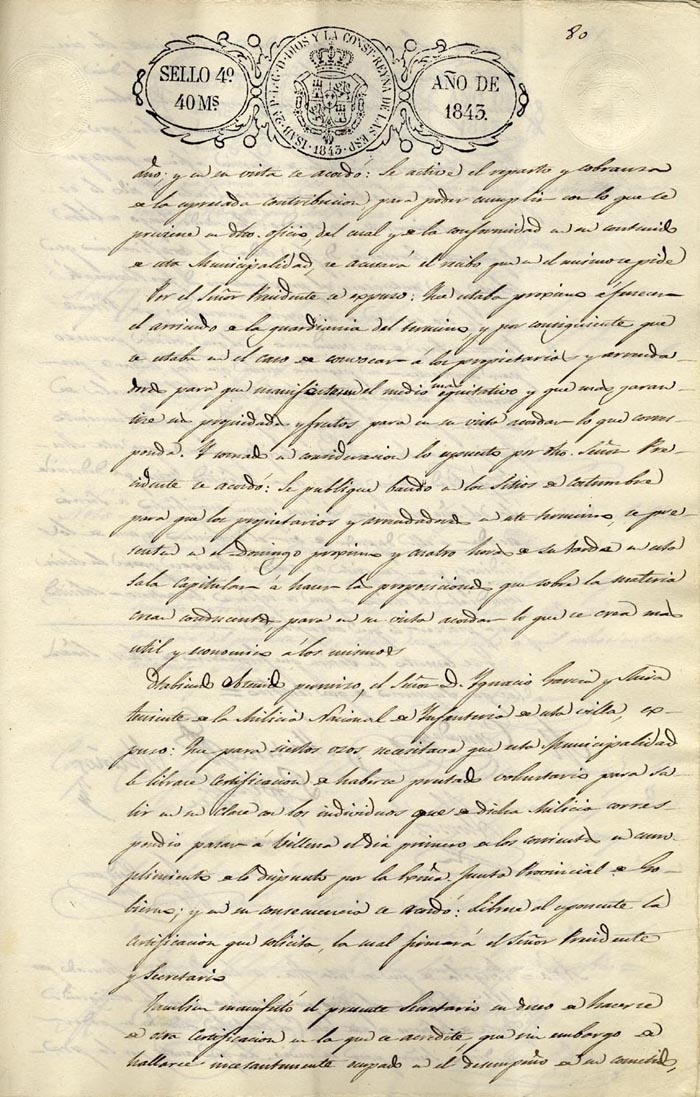 80
SELLO 4º
40 Ms
ISAB. 2ª P. L. G. D. DIOS Y LA CONST. REYNA DE LAS ESP.
1843
AÑO DE
1843.
año; y en su vista se acordó: Se active el reparto y cobranza
de la espresada contribucion para poder cumplir con lo que se
previene en dho. oficio, del cual y de la conformidad en su contenido
de esta Municipalidad, se acusará el recibo que en el mismo se pide
Por el Señor Presidente se espuso: Que estaba proximo á fenecer
el arriendo de la guardiania del termino y por consiguiente que
se estaba en el caso de convocar á los propietarios y arrenda-
dores para que manifiesten el medio mas equitativo y que mas garan-
tize sus propiedades y frutos para en su vista acordar lo que corres-
ponda. Y tomado en consideracion lo espuesto por dho. Señor Pre-
sidente se acordó: Se publique bando en los Sitios de costumbre
para que los propietarios y arrendadores en este termino, se pre-
senten en el Domingo proximo y cuatro horas de su tarde en esta
sala capitular á hacer las proposiciones que sobre la materia
crean conducentes, para en su vista acordar lo que se crea mas
util y economico á los mismos
Habiendo obtenido permiso, el Señor D. Ygnacio Garcia y
teniente de la Milicia Nacional de Infanteria de esta villa, es-
puso: Que para ciertos usos necesitava que esta Municipalidad
le librase certificacion de haberse prestado voluntario para sa-
lir en su clase con los individuos que de dicha Milicia corres-
pondio pasar á Villena el dia primero de los corrientes en cum-
plimiento de lo dispuesto por la Exma. Junta Provincial de Go-
bierno; y en su consecuencia se acordó: Librese al esponente la
certificacion que solicita, la cual firmará el Señor Presidente
y Secretario
Tambien manifestó el presente Secretario su deseo de hacerse
de otra certificacion en la que se acredite, que sin embargo de
hallarse incesantemente ocupado en el desempeño de su cometido,